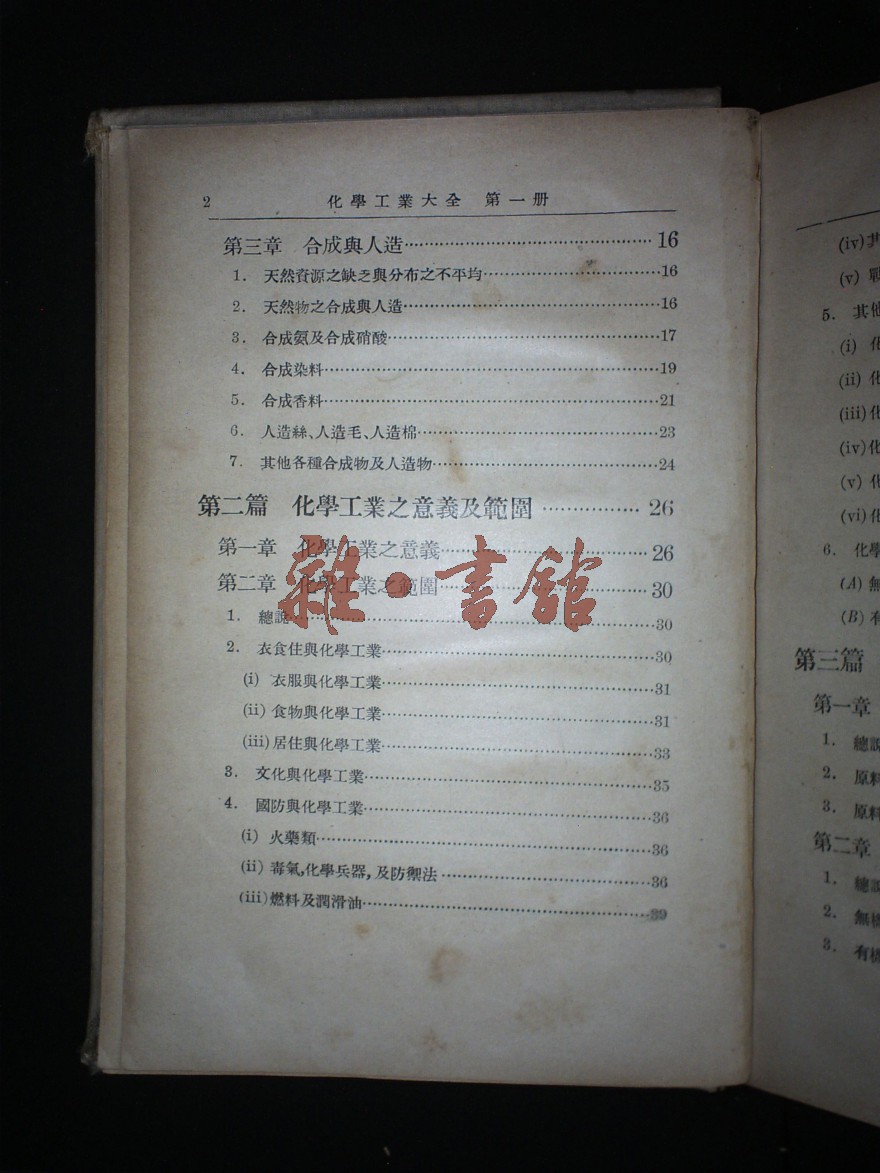 2 化學工業大全 第一册
第三章 合成與人造……………………………………… 16
1. 天然資源之缺乏與分布之不平均……………………………16
2. 天然物之合成與人造……………………………………16
3. 合成氨及合成硝酸………………………………………17
4. 合成染料…………………………………………………19
5. 合成香料…………………………………………………21
6. 人造絲、人造毛、人造棉…………………………………23
7. 其他各種合成物及人造物………………………………24
第二篇 化學工業之意義及範圍 …………… 26
第一章 化學工業之意義………………………………… 26
第二章 化學工業之範圍………………………………… 30
1. 總說………………………………………………………30
2. 衣食住與化學工業………………………………………30
(i) 衣服與化學工業………………………………………31
(ii) 食物與化學工業………………………………………31
(iii) 居住與化學工業………………………………………33
3. 文化與化學工業…………………………………………35
4. 國防與化學工業…………………………………………36
(i) 火藥類…………………………………………………36
(ii) 毒氣,化學兵器,及防禦法 ……………………………36
(iii) 燃料及潤滑油…………………………………………39
雜·書舘
(iv)
(v)
5. 其他
(i) 化
(ii) 化
(iii) 化
(iv) 化
(v) 化
(vi) 化
6. 化學
(A) 無
(B) 有
第三篇
第一章
1. 總說
2. 原料
3. 原料
第二章
1. 總說
2. 無機
3. 有機